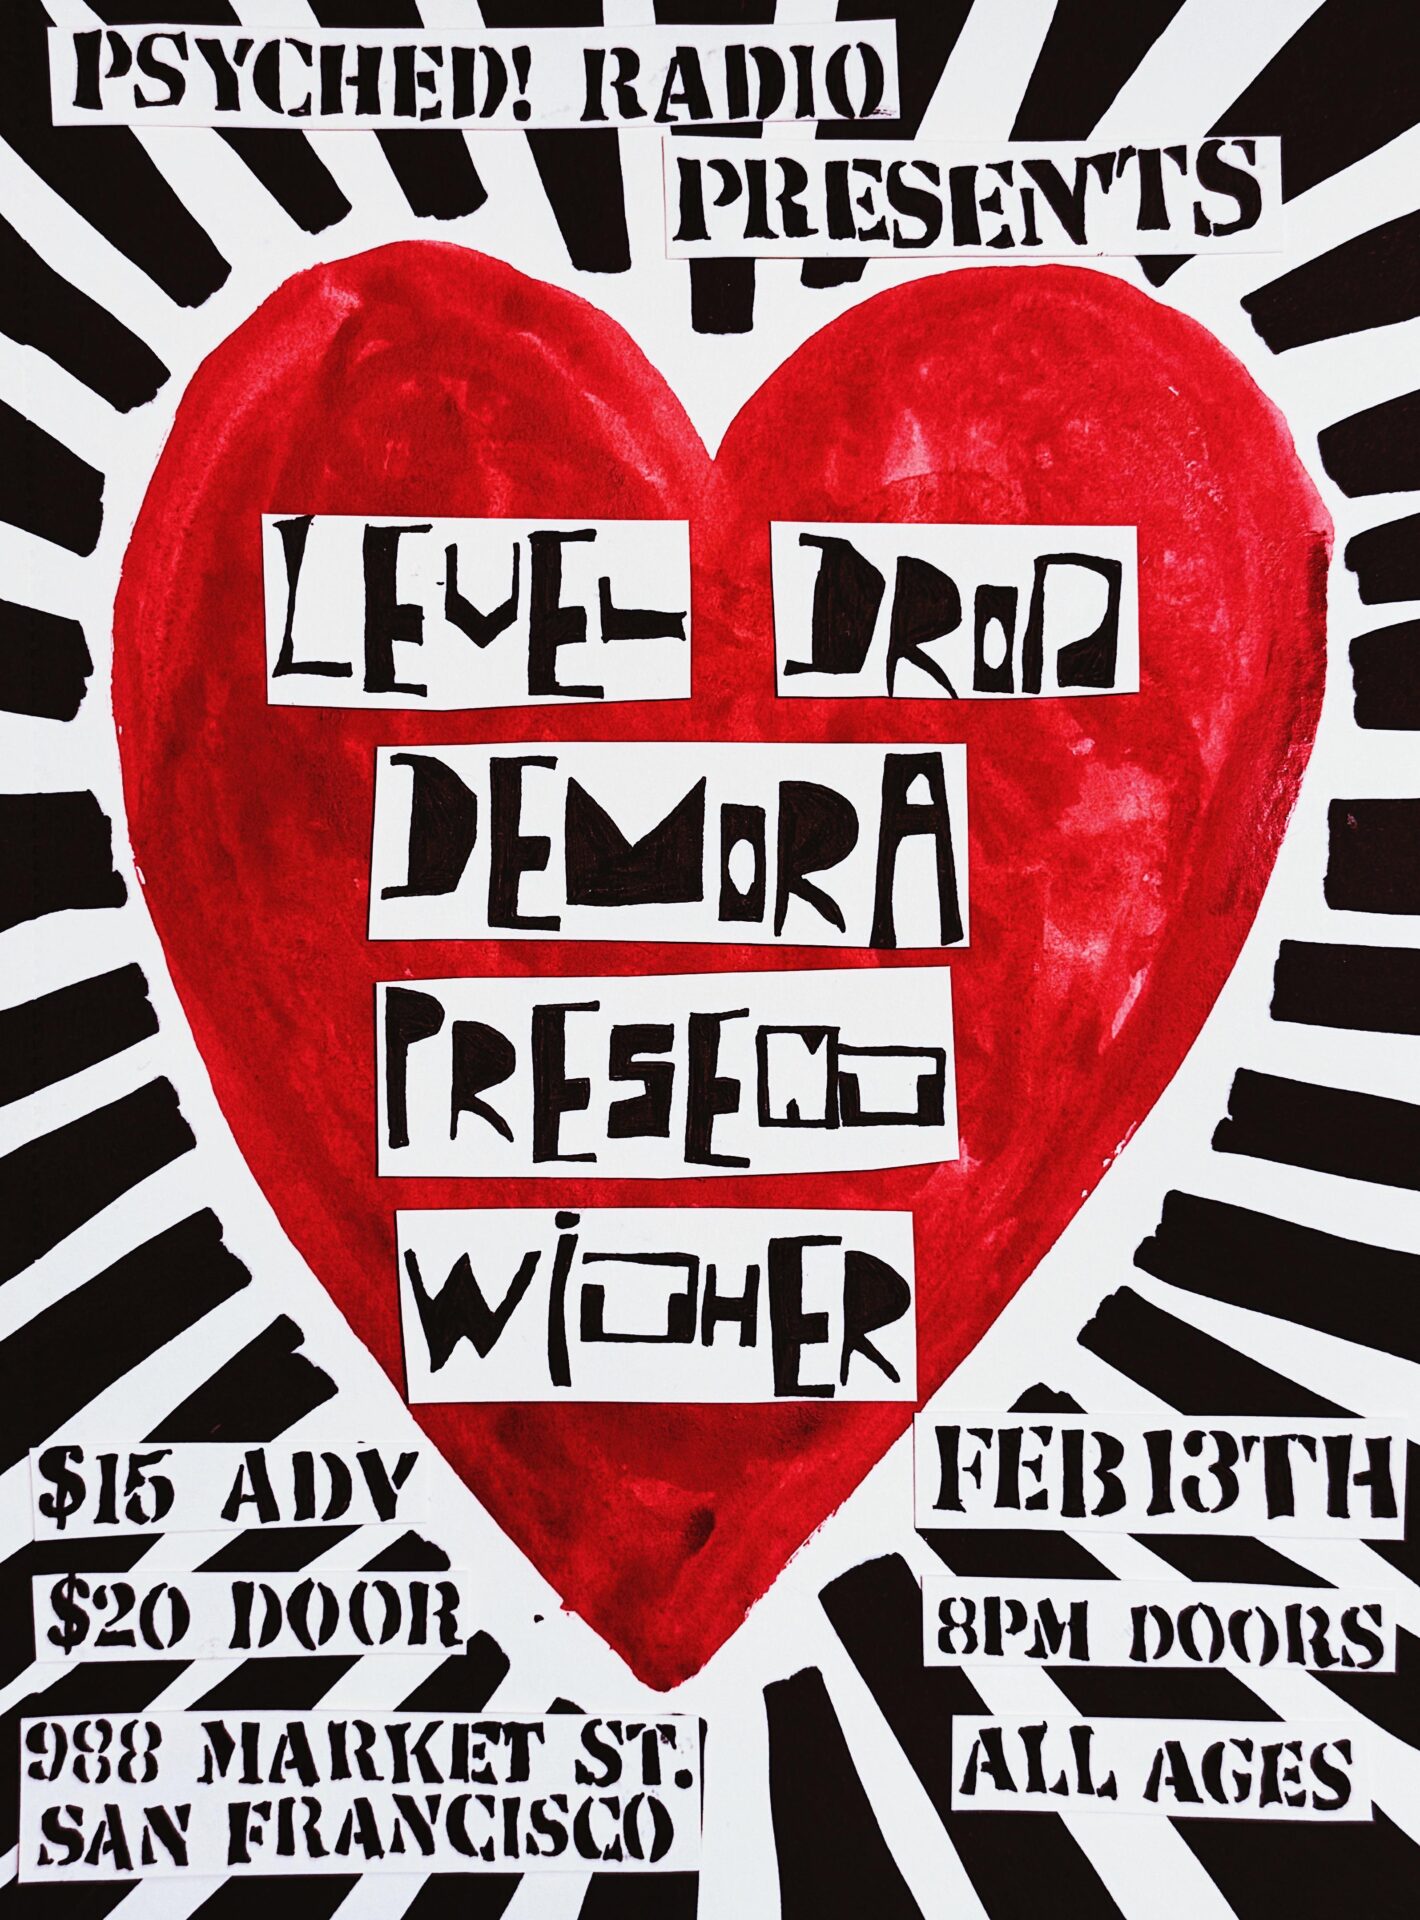 PSYCHED! RADIO
PRESENTS
LEVEL DROP
DEMORA
PRESENT
WITHER
$15 ADV
FEB 13TH
$20 DOOR
8PM DOORS
988 MARKET ST.
SAN FRANCISCO
ALL AGES